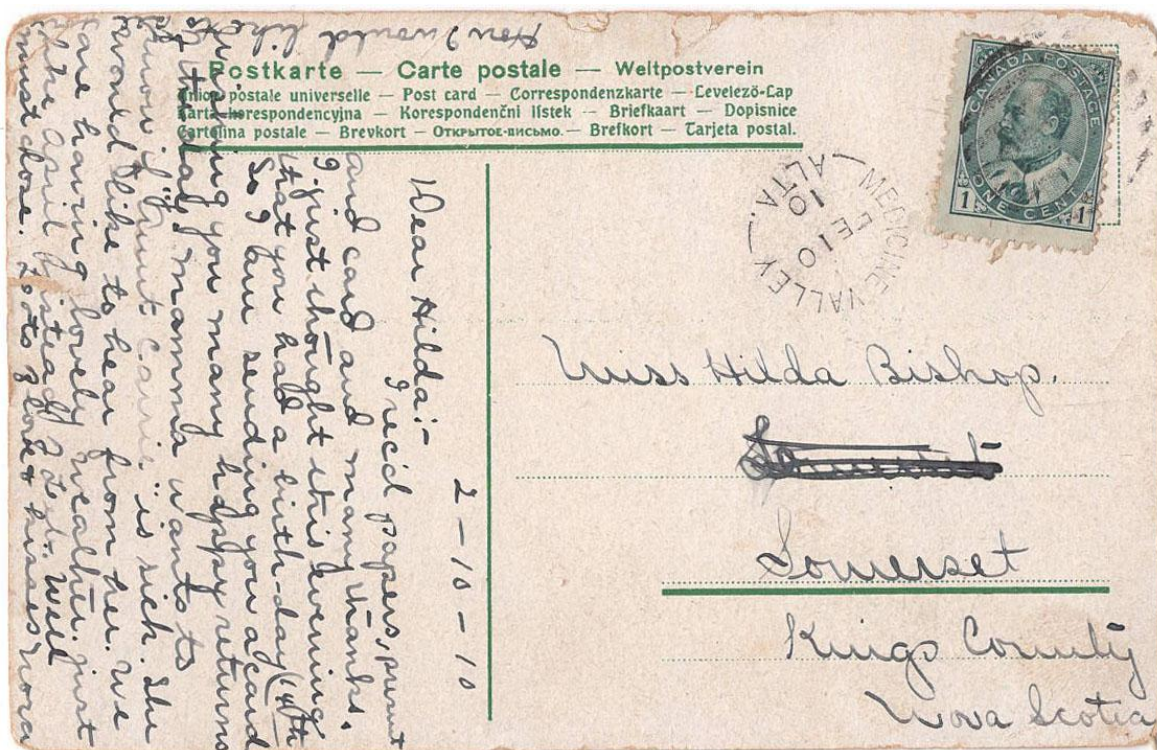 Postkarte — Carte postale — Weltpostverein
Union postale universelle — Post card — Correspondenzkarte — Levelező-Lap
Karta korespondencyjna — Korespondenční lístek — Briefkaart — Dopisnice
Cartolina postale — Brevkort — Открытое-письмо. — Brefkort — Tarjeta postal.
CANADA POSTAGE
ONE CENT
1 1
MEDICINE VALLEY
FE 10
10
ALTA.
2-10-10
Dear Hilda:-
I rec'd papers, present
and card and many thanks.
I just thought this evening
that you had a birth-day (4th
So I am sending you a card
wishing you many happy returns
of the day, mamma wants to
know if "Aunt Carrie" is sick. She
would like to hear from her. We
are having lovely weather. just
like April instead of Feb. Well
must close. Lots of love & kisses Nora
How I would like
to
Miss Hilda Bishop.
Somerset
Kings County
Nova Scotia